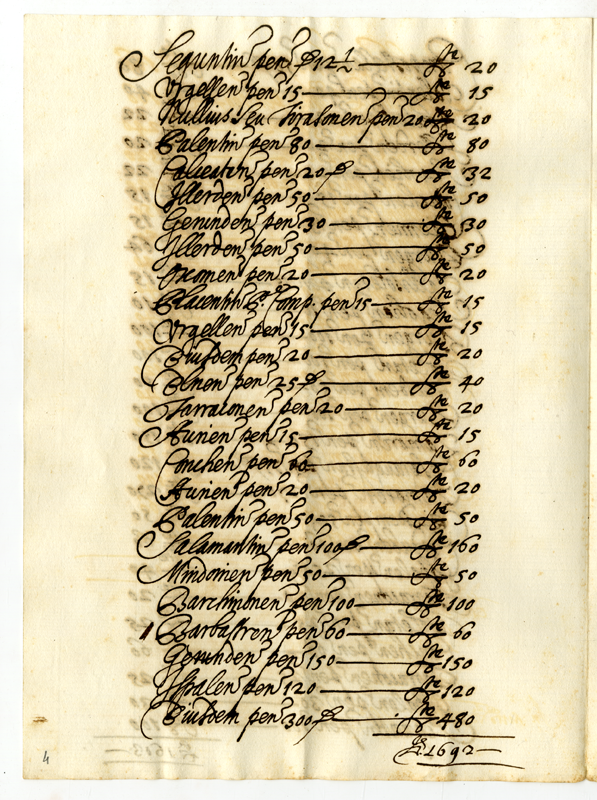 Seguntin pen P 12 1/2 — 20
Urgellen pen 15 — 15
Nullius seu Tirasonen pen 20 — 20
Palentin pen 80 — 80
Calicaten pen 20 P — 32
Illerden pen 50 — 50
Gerunden pen 30 — 30
Illerden pen 50 — 50
Oxomen pen 20 — 20
Placentin pen 15 — 15
Urgellen pen 15 — 15
Eiusdem pen 20 — 20
pen 25 P — 40
Tarraconen pen 20 — 20
Aurien pen 15 — 15
Conchen pen 60 — 60
Aurien pen 20 — 20
Palentin pen 50 — 50
Salamantin pen 100 P — 160
Mindonien pen 50 — 50
Barchinonen pen 100 — 100
Barbastren pen 60 — 60
Gerunden pen 150 — 150
Ispalen pen 120 — 120
Eiusdem pen 300 P — 480
1692
4